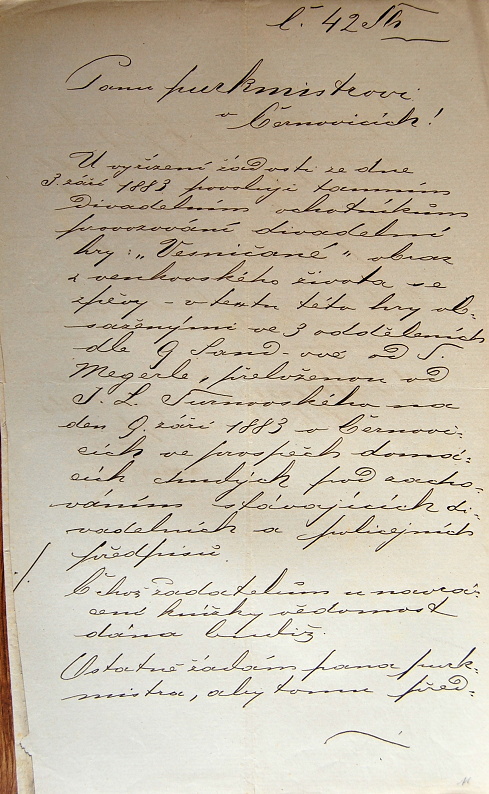 č. 42 Sth
Panu purkmistrovi
v Černovicích!
U vyřízení žádosti ze dne
3. září 1883 povoluji tamním
divadelním ochotníkům
provozování divadelní
hry: „Vesničané" obraz
z venkovského života se
zpěvy – v textu této hry ob-
sáženými ve 3 odděleních
dle G Sand-ové od T.
Megerle, přeloženou od
J. L. Turnovského na
den 9. září 1883 v Černovi-
cích ve prospěch domá-
cích chudých pod zacho-
váním stávajících di-
vadelních a policejních
předpisů.
Čehož žadatelům u navrá-
cení knížky vědomost
dána budiž.
Ostatně žádám pana purk-
mistra, aby tomu před-